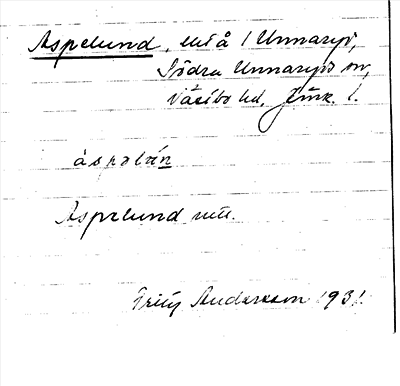 Aspelund, utå 1 Unnaryd,
Södra Unnaryds sn,
Västbo hd, Jönk. l.
àspəlún
Aspelund utt.
Fritz Andersson 1931.